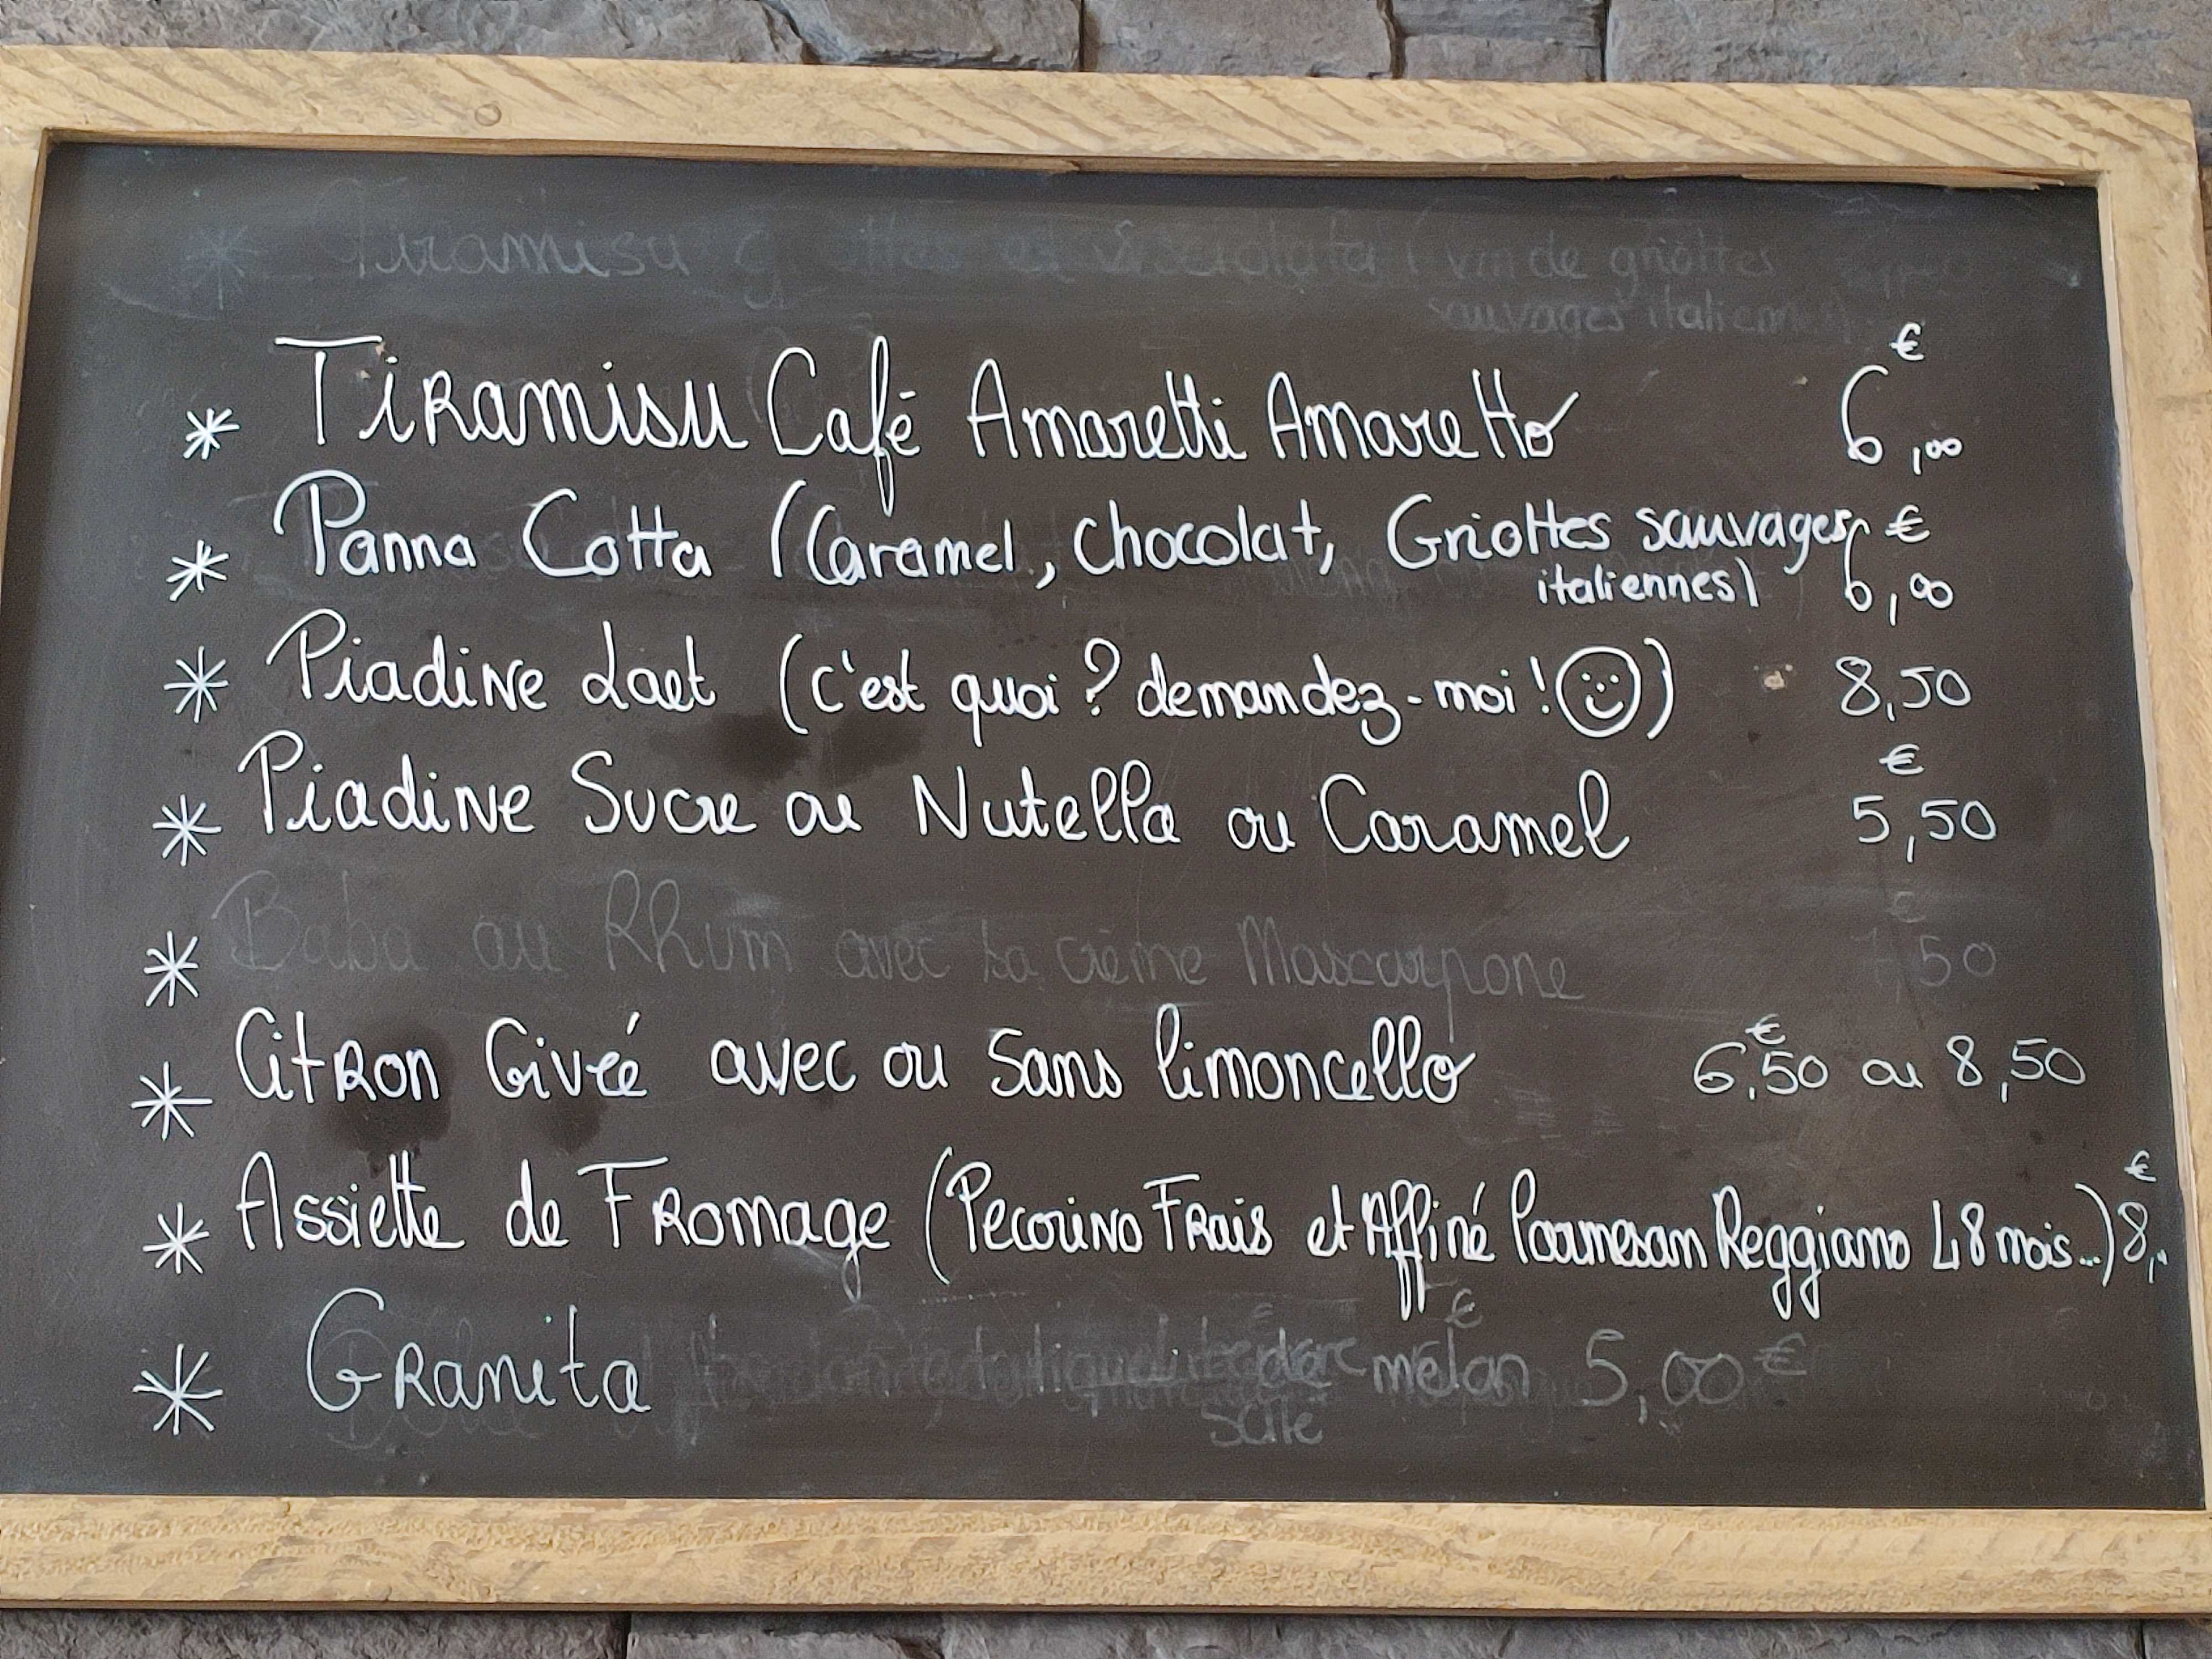 * Tiramisu vin de griottes
sauvages italiennes)
* Tiramisu Café Amaretti Amaretto 6,00 €
* Panna Cotta (Caramel, chocolat, Griottes sauvages €
italiennes) 6,00
* Piadine Laet (c'est quoi ? demandez-moi ! ☺) 8,50
* Piadine Sucre ou Nutella ou Caramel 5,50 €
* Baba au Rhum avec sa crème Mascarpone 7,50 €
* Citron Givré avec ou sans limoncello 6,50 € ou 8,50
* Assiette de Fromage (Pecorino Frais et Affiné Parmesan Reggiano 48 mois...) 8,.. €
* Granita melon 5,00 €